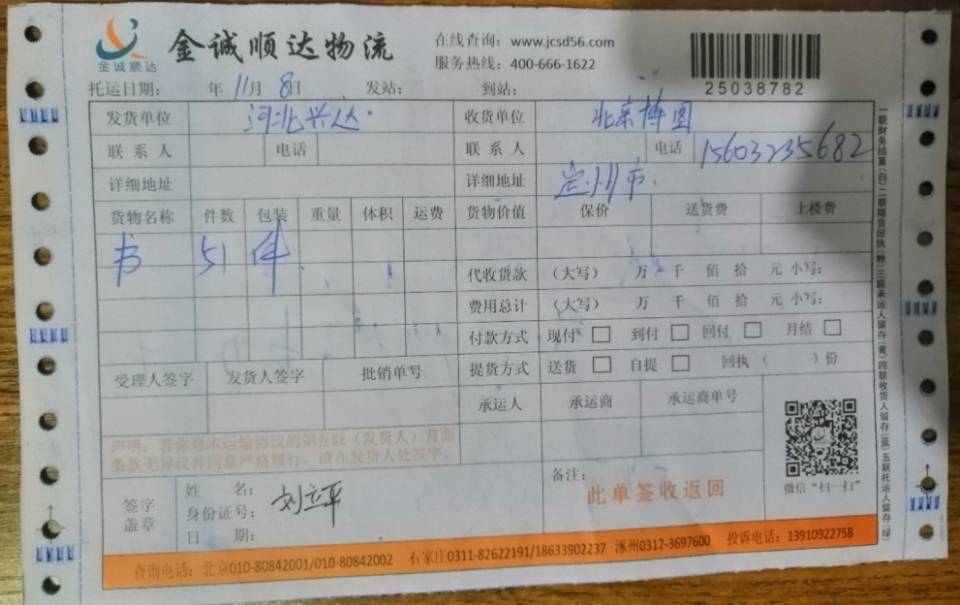 金诚顺达
金诚顺达物流
在线查询：www.jcsd56.com
服务热线：400-666-1622
25038782
托运日期： 年 11月 8日 发站： 到站：
发货单位 河北兴达 收货单位 北京博图
联系人 电话 联系人 电话 15603235682
详细地址 详细地址 定州市
货物名称 件数 包装 重量 体积 运费 货物价值 保价 送货费 上楼费
书 51 件
代收货款 （大写） 万 千 佰 拾 元 小写：
费用总计 （大写） 万 千 佰 拾 元 小写：
付款方式 现付 到付 回付 月结
受理人签字 发货人签字 批销单号 提货方式 送货 自提 回执（ ）份
承运人 承运商 承运商单号
声明：若你对本运输协议的第五联（发货人）背面
条款无异议并同意严格履行，请在发货人处签字。
签字
盖章
姓 名： 刘立平
身份证号：
日 期：
备注：
此单签收返回
微信“扫一扫”
一联财务结算(白)二联随货回执(粉)三联承运人留存(黄)四联收货人留存(蓝)五联托运人留存(绿)
查询电话：北京010-80842001/010-80842002 石家庄0311-82622191/18633902237 涿州0312-3697600 投诉电话：13910922758